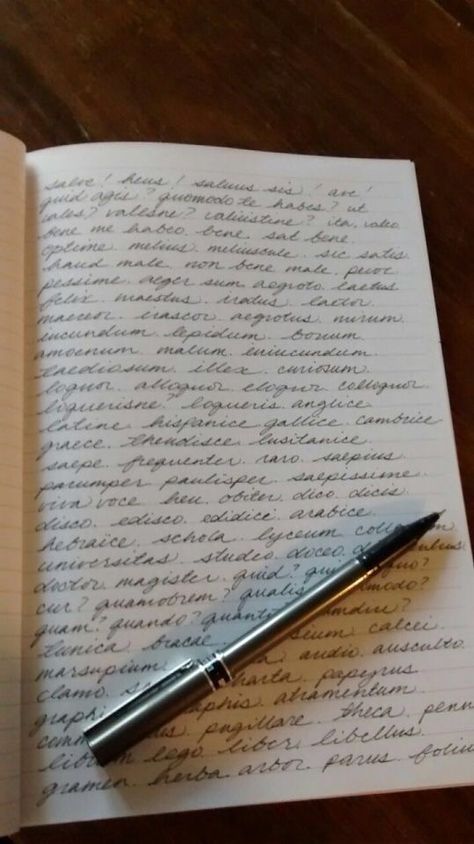 salve! heus! salvus sis! ave!
quid agis? quomodo te habes? ut
vales? valesne? valuistine? ita, valeo
bene me habeo. bene. sat bene.
optime melius meliuscule. sic satis
haud male. non bene male. pejor
pessime. aeger sum aegroto. laetus
felix. maestus iratus laetor
maereor. irascor aegrotus mirum.
iucundum. lepidum. bonum.
amoenum malum. iniucundum.
taediosum. illex. curiosum.
loquor. alloquor eloquor colloquor
loquerisne? loqueris. anglice
latine hispanice gallice. cambrice
graece. theudisce. lusitanice
saepe frequenter. raro. saepius
parumper paulisper saepissime.
viva voce heu. obiter. dico. dicis
disco. edisco. edidici arabice.
hebraice. schola. lyceum
universitas studeo. doceo.
doctor magister quid?
cur? quamobrem? qualis
quam? quando? quamdiu?
tunica bracae calcei.
marsupium audio. ausculto.
clamo. charta. papyrus
graphis atramentum.
pugillare. theca. penn
lego. liber. libellus.
gramen. herba arbor. parus. foliu